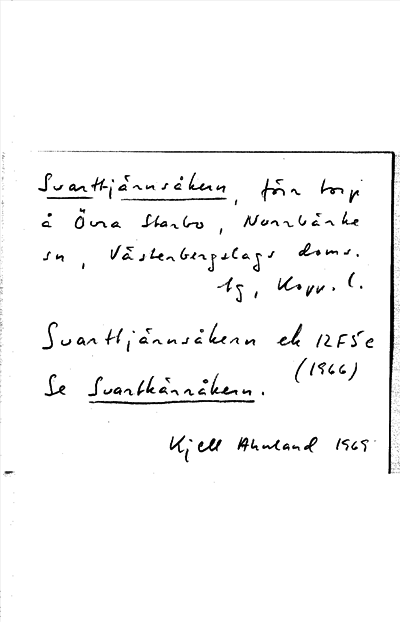 Svarttjärnsåkern, förr torp
å Övra Starbo, Norrbärke
sn, Västerbergslags doms.
tg, Kopp. l.
Svarttjärnsåkern ek 12F5e
(1966)
Se Svartkärråkern.
Kjell Ahnland 1969